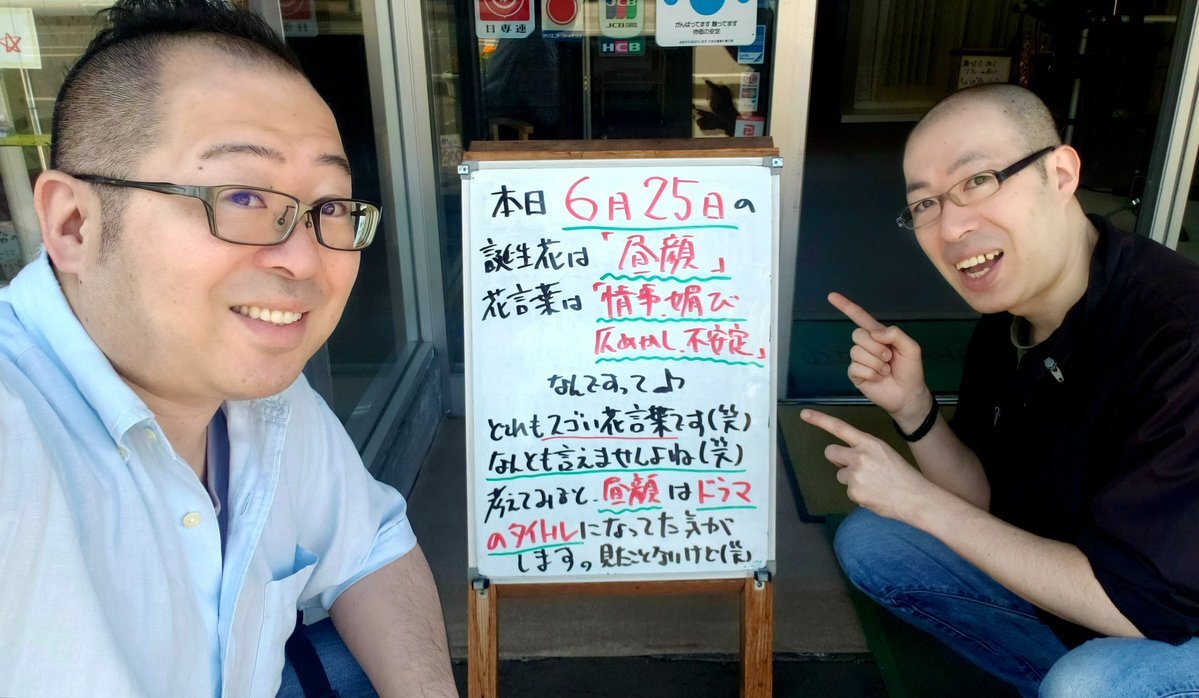 日専連
JCB CARDS
HCB
がんばってます 勝ってます
本日 6月25日の
誕生花は「昼顔」
花言葉は「情事、媚び
仄めかし、不安定」
なんですって♪
どれもスゴい花言葉です(笑)
なんとも言えませんよね(笑)
考えてみると、昼顔はドラマ
のタイトルになってた気が
します。見たことないけど(笑)